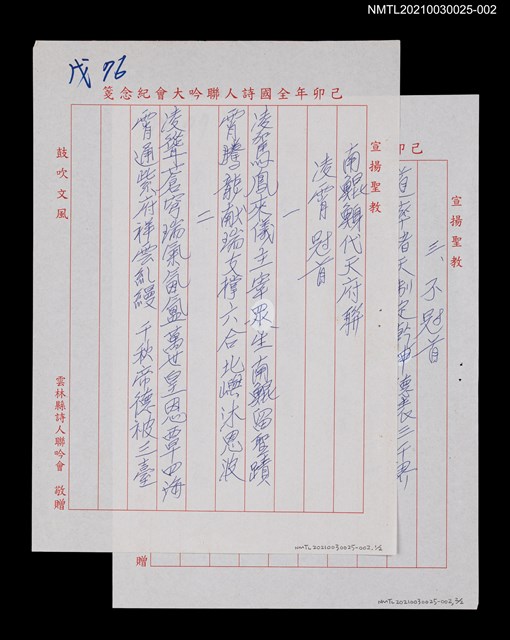 NMTL20210030025-002
戊 76
己卯年全國詩人聯吟大會紀念箋
宣揚聖教
南鯤鯓代天府聯
凌霄 冠首
一
凌駕鳳來儀主宰眾生南鯤留聖蹟
霄騰龍獻瑞支撐六合北嶼沐恩波
二
凌聳蒼穹瑞氣氤氳萬世皇恩覃四海
霄通紫府祥雲糺縵千秋帝德被三臺
鼓吹文風
雲林縣詩人聯吟會 敬贈
NMTL20210030025-002, 1/2
己卯
宣揚聖教
三、不冠首
贈
NMTL20210030025-002, 2/2